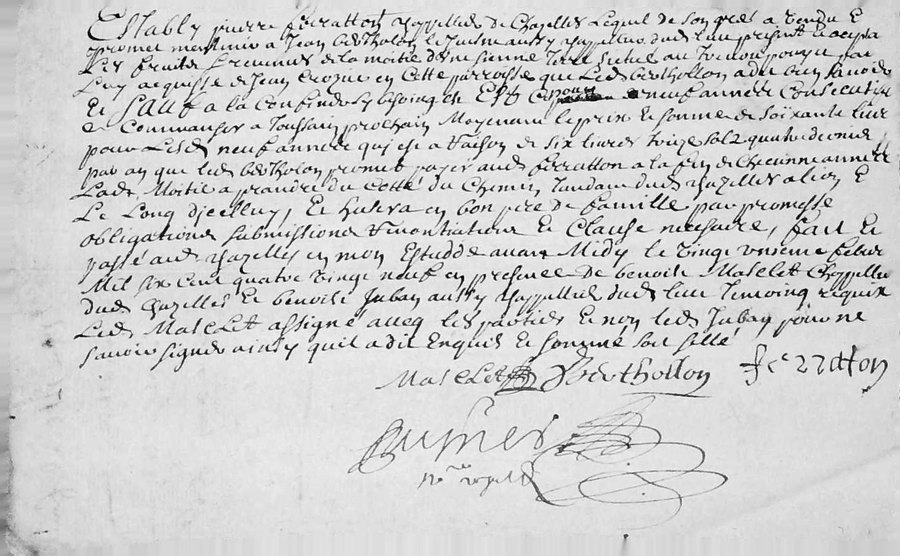 Establi pierre ferratton chappellier de Chazelles lequel de son gré a vendu et
promet maintenir a Jean berthollon le jeusne aussy chappellier dud lieu present et accepta
Les fruits et revenus de la moitié d'une sienne terre scituée au
Luy acquise de Jean en cette parroisse que led berthollon a dit bien savoir
Et sauf a la confiner sy besoing est Et ce pour neuf années Consecutives
a Commancer a Toussain prochain Moyenant le prix et somme de soixante livres
pour lesd neuf années qui est a raison de six livres treize solz quatre deniers
par an que led berthollon promet payer aud ferratton a la fin de chacunne année
Lade Moitié a prendre du cotté du Chemin tandant dud chazelles a lion et
Le Long d'icelluy, Et usera en bon pere de famille par promesse
obligations submissions renontiations et Clause necessaire, fait et
passé aud chazelles en mon Estudde avant Midy le vingt unieme febvrier
Mil six cent quatre vingt neuf en presence de benoist Maselet chappellier
dud chazelles Et benoist Juban aussy chappellier dud lieu temoing requis
Led Maselet a signé avecq les parties et non led Juban pour ne
savoir signer ainsy qu'il a dit Enquis et sommé soit sellé
Maselet Berthollon ferratton
no.re royal